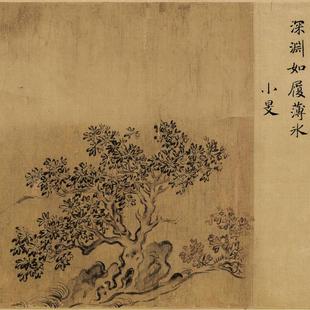 深淵如履薄冰
小旻